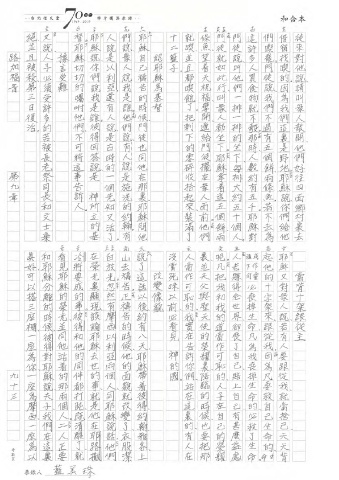 和合本
從來對他說請叫眾人散開他們好往四面鄉村裏去
借宿找吃的因為我們這裏是野地耶穌說你們給他
們吃罷門徒說我們不過有五個餅兩條魚若不去為
這許多人買食物就不夠那時人數約有五千耶穌對
門徒說叫他們一排一排的坐下每排大約五十個人
門徒就如此行叫眾人都坐下耶穌拿著這五個餅兩
條魚望著天祝福擘開遞給門徒擺在眾人面前他們
就吃並且都吃飽了把剩下的零碎收拾起來裝滿了
十二籃子
認耶穌為基督
耶穌自己禱告的時候門徒也同他在那裏耶穌問他
們說眾人說我是誰他們說有人說是施洗的約翰有
人說是以利亞還有人說是古時的一個先知又活了
耶穌說你們說我是誰彼得回答說是 神所立的基
督耶穌切切的囑咐他們不可將這事告訴人
預言受難
又說人子必須受許多的苦被長老祭司長和文士棄
絕並且被殺第三日復活
背十架跟從主
耶穌又對眾人說若有人要跟從我就當捨己天天背
起他的十字架來跟從我因為凡要救自己生命的必
喪掉生命凡為我喪掉生命的必救了生命
人若賺得全世界卻喪了自己賠上自己有甚麼益處
呢凡把我和我的道當作可恥的人子在自己的榮耀
裏並天父與聖天使的榮耀裏降臨的時候也要把那
人當作可恥的我實在告訴你們站在這裏的有人在
沒嘗死味以前必看見 神的國
改變像貌
說了這話以後約有八天耶穌帶著彼得約翰雅各上
山去禱告正禱告的時候他的面貌就改變了衣服潔
白放光忽然有摩西以利亞兩個人同耶穌說話他們
在榮光裏顯現談論耶穌去世的事就是他在耶路撒
冷將要成的事彼得和他的同伴都打盹既清醒了就
看見耶穌的榮光並同他站著的那兩個人二人正要
和耶穌分離的時候彼得對耶穌說夫子我們在這裏
真好可以搭三座棚一座為你一座為摩西一座為以
路加福音 第九章 九十三